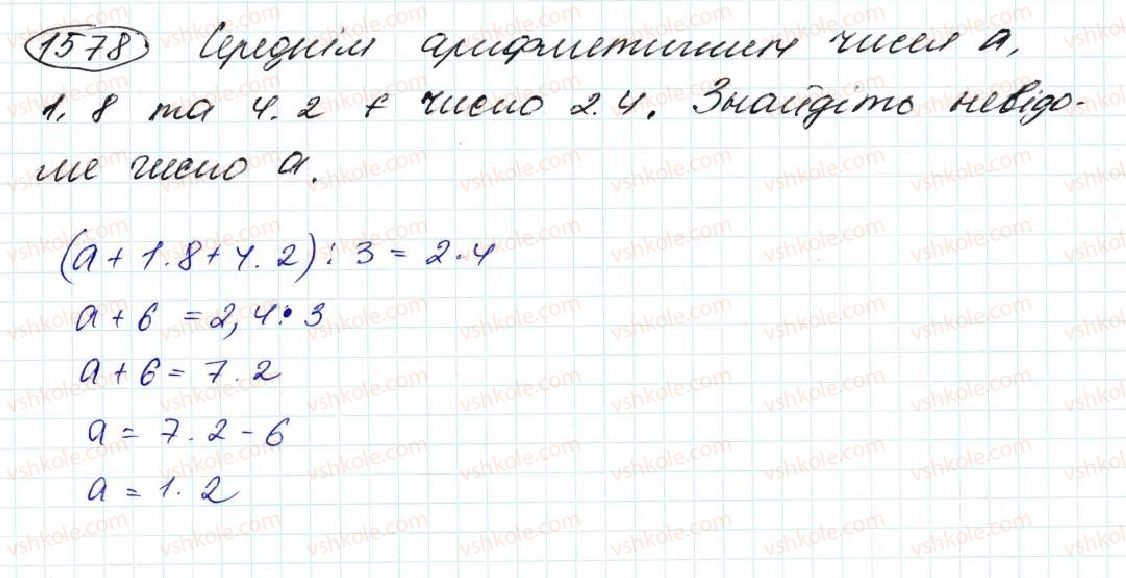 1578 Середнім арифметичним чисел а,
1,8 та 4.2 є число 2.4. Знайдіть невідо-
ме число а.
(a + 1.8 + 4.2) : 3 = 2.4
a + 6 = 2,4 • 3
a + 6 = 7.2
a = 7.2 - 6
a = 1.2